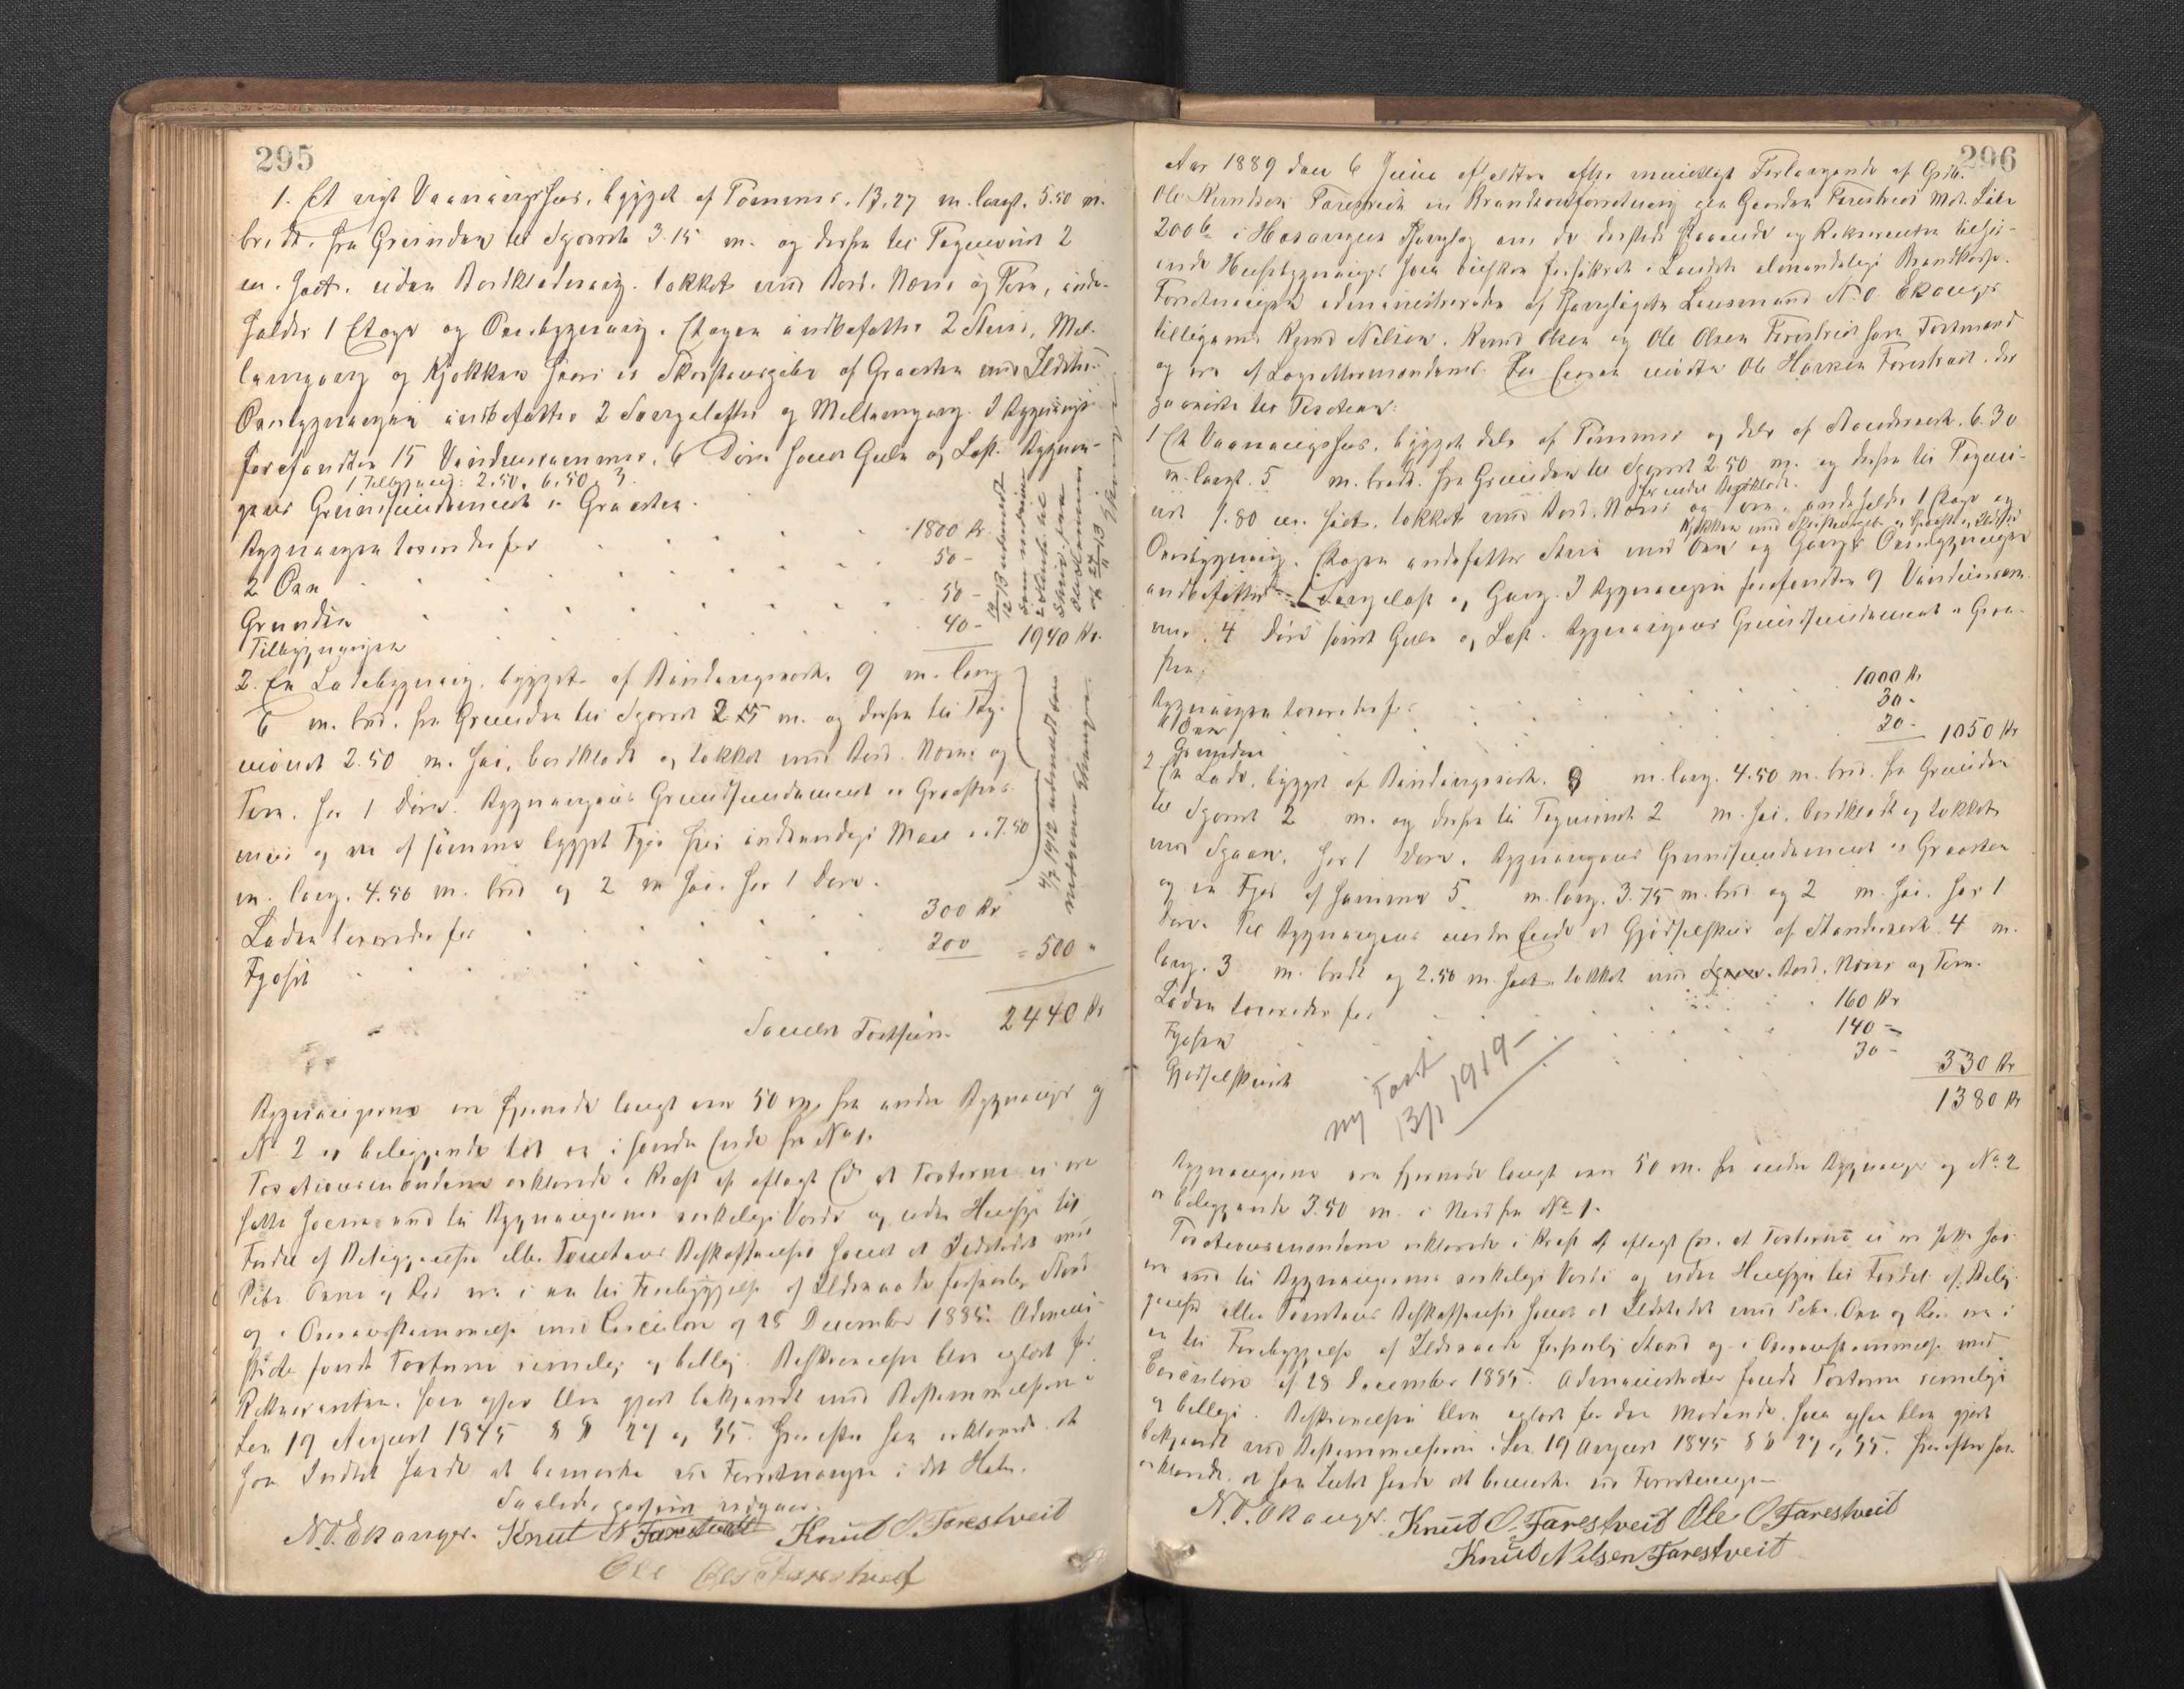 295
1. Et nyt Vaaningshus, bygget af Tømmer, 13,27 m. langt, 5.50 m.
bredt, fra Grunden til Sgarnet 3.15 m. og derfra til Tagmønet 2
m. høit, uden Bordklædning, takket med Bord, Næver og Torv, inde-
holder 1 Etage og Ovnbygning. Etagen indbefatter 2 Stuer, Mel-
lemgang og Kjøkken hvori er Skorstenspibe af Graasten med Ildsted.
Ovnbygningen indbefatter 2 Sovgelofter og Mellemgang. I Bygningen
forefandtes 15 Vinduesrammer, 6 Døre samt Gulv og Loft. Bygnin-
1 Tilbygning: 2,50, 6,50, 3.
gens Grundfundament er Graasten.
Bygningen taxeredes for 1800 Kr.
2 Ovne 50 -
Grunden 50 -
Tilbygningen 40 - 1940 Kr.
2. En Ladebygning, bygget af Bindingsverk, 9 m. lang
6 m. bred, fra Grunden til Sgarnet 2.75 m. og derfra til Tag-
mønet 2.50 m. høi, bordklædt og takket med Bord, Næver og
Torv, har 1 Dør. Bygningens Grundfundament er Graastens
mur og en af samme bygget Fjøs hvis indvendige Maal er 7.50
m. lang, 4.50 m. bred og 2 m høi, har 1 Dør.
Laden taxeredes for 300 Kr
Fjøset 200 = 500 "
Samlet Taxtsum 2440 Kr
4/7 1912 udmeldt
Bygningerne ere fjernede langt over 50 m. fra andre Bygninger og
No 2 er beliggende i søndre Ende fra No 1.
Taxationsmændene erklærede i Kraft af aflagt Ed at Taxterne ei ere
satte høiere end til Bygningernes virkelige Værdi og uden Hensyn til
Fordel af Beliggenhed eller Tomtens Beskaffenhed samt at Ildstedet med
Pibe, Ovne og Rør ere i en til Forebyggelse af Ildsvaade forsvarlig Stand
og i Overensstemmelse med Circulære af 28 December 1885. Admini-
strator fandt Taxterne rimelig og billig. Beskrivelsen blev oplæst for
Rekvirenten, som ogsaa blev gjort bekjendt med Bestemmelserne i
Lov 19 August 1845 §§ 27 og 35, hvorefter han erklærede at
han Intet havde at bemærke ved Forretningen i det Hele.
Saaledes passeret udgaar.
N. O. Ekanger. Knut N Farestveit Knut O. Farestveit
Ole Ols Farestveit
296
Aar 1889 den 6 Juni afholdtes efter mundtligt Forlangende af Grdb.
Ole Knudsen Farestveit en Brandtaxtforretning paa Gaarden Farestveit Mat. Løbe
200 b i Hosanger Thinglag over de dersteds staaende og Rekvirenten tilhø-
rende Husebygninger som ønskes forsikret i Landets almindelige Brandkasse.
Forretningen administreredes af Thinglagets Lensmand N. O. Ekanger
tilligemed Knud Nilsen, Knud Olsen og Ole Olsen Farestveit som Taxtmænd
og ere af Lagrettemændene. For Eieren mødte Ole Farestveit. Der
gaaedes til Taxation:
1 Et Vaaningshus, bygget dels af Tømmer og dels af Standverk, 6.30
m. langt, 5 m. bredt, fra Grunden til Sgarnet 2.50 m. og derfra til Tagmø-
net 1.80 m. høit, takket med Bord, Næver og Torv, indeholder 1 Etage og
Ovnbygning. Etagen indbefatter Stue med Ovn og Gang, Ovnbygningen
Kjøkken med Skorstenspibe af Graasten og Ildsted
indbefatter 1 Sovgeloft og Gang. I Bygningen forefandtes 9 Vinduesram-
mer, 4 Døre samt Gulv og Loft. Bygningens Grundfundament er Graa-
sten.
Bygningen taxeredes for 1000 Kr
1 Ovn 30 -
Grunden 20 - 1050 Kr
2 En Lade, bygget af Bindingsverk, 8 m. lang, 4.50 m. bred, fra Grunden
til Sgarnet 2 m. og derfra til Tagmønet 2 m. høi, bordklædt og takket
med Spaan, har 1 Dør. Bygningens Grundfundament er Graasten
og en Fjøs af samme 5 m. lang, 3.75 m. bred og 2 m. høi, har 1
Dør. Ved Bygningens nordre Ende et Gjødselskur af Standverk 4 m.
lang, 3 m. bredt og 2.50 m. høit, takket med Spaan, Bord, Næver og Torv.
Laden taxeredes for 160 Kr
Fjøsen 140 -
Gjødselskuret 30 - 330 Kr
1380 Kr
ny Taxt
13/1 1919 -
Bygningerne ere fjernede langt over 50 m. fra andre Bygninger og No 2
er beliggende 3.50 m. i Nord fra No 1.
Taxationsmændene erklærede i Kraft af aflagt Ed, at Taxterne ei ere satte høi-
ere end til Bygningernes virkelige Værdi og uden Hensyn til Fordel af Belig-
genhed eller Tomtens Beskaffenhed samt at Ildstedet med Pibe, Ovn og Rør ere i
en til Forebyggelse af Ildsvaade forsvarlig Stand og i Overensstemmelse med
Circulære af 28 December 1885. Administrator fandt Taxterne rimelige
og billige. Beskrivelsen blev oplæst for den Mødende, som ogsaa blev gjort
bekjendt med Bestemmelserne i Lov 19 August 1845 §§ 27 og 35, hvorefter han
erklærede at han Intet havde at bemærke ved Forretningen
N. O. Ekanger. Knud O. Farestveit Ole O Farestveit
Knud Nilsen Farestveit